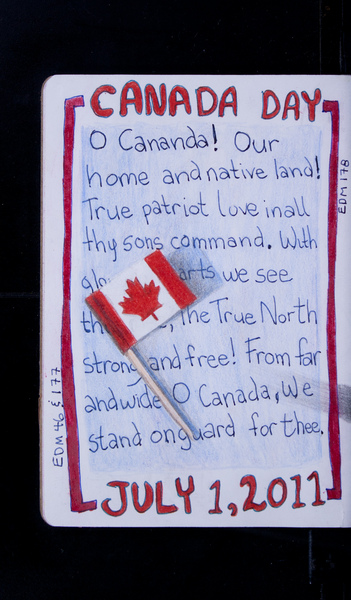 CANADA DAY
O Cananda! Our
home and native land!
True patriot love in all
thy sons command. With
glo arts we see
th , the True North
strong and free! From far
and wide O Canada, We
stand on guard for thee.
JULY 1, 2011
EDM 178
EDM 46 & 177